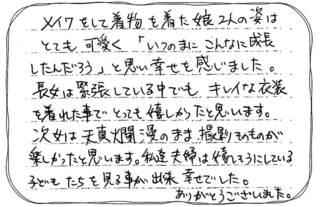 メイクをして着物を着た娘2人の姿は
とても可愛く「いつのまにこんなに成長
したんだろう」と思い幸せを感じました。
長女は緊張している中でもキレイな衣装
を着れた事でとっても嬉しかったと思います。
次女は天真爛漫のまま撮影そのものが
楽しかったと思います。私達夫婦は嬉しそうにしている
子どもたちを見る事が出来幸せでした。
ありがとうございました。